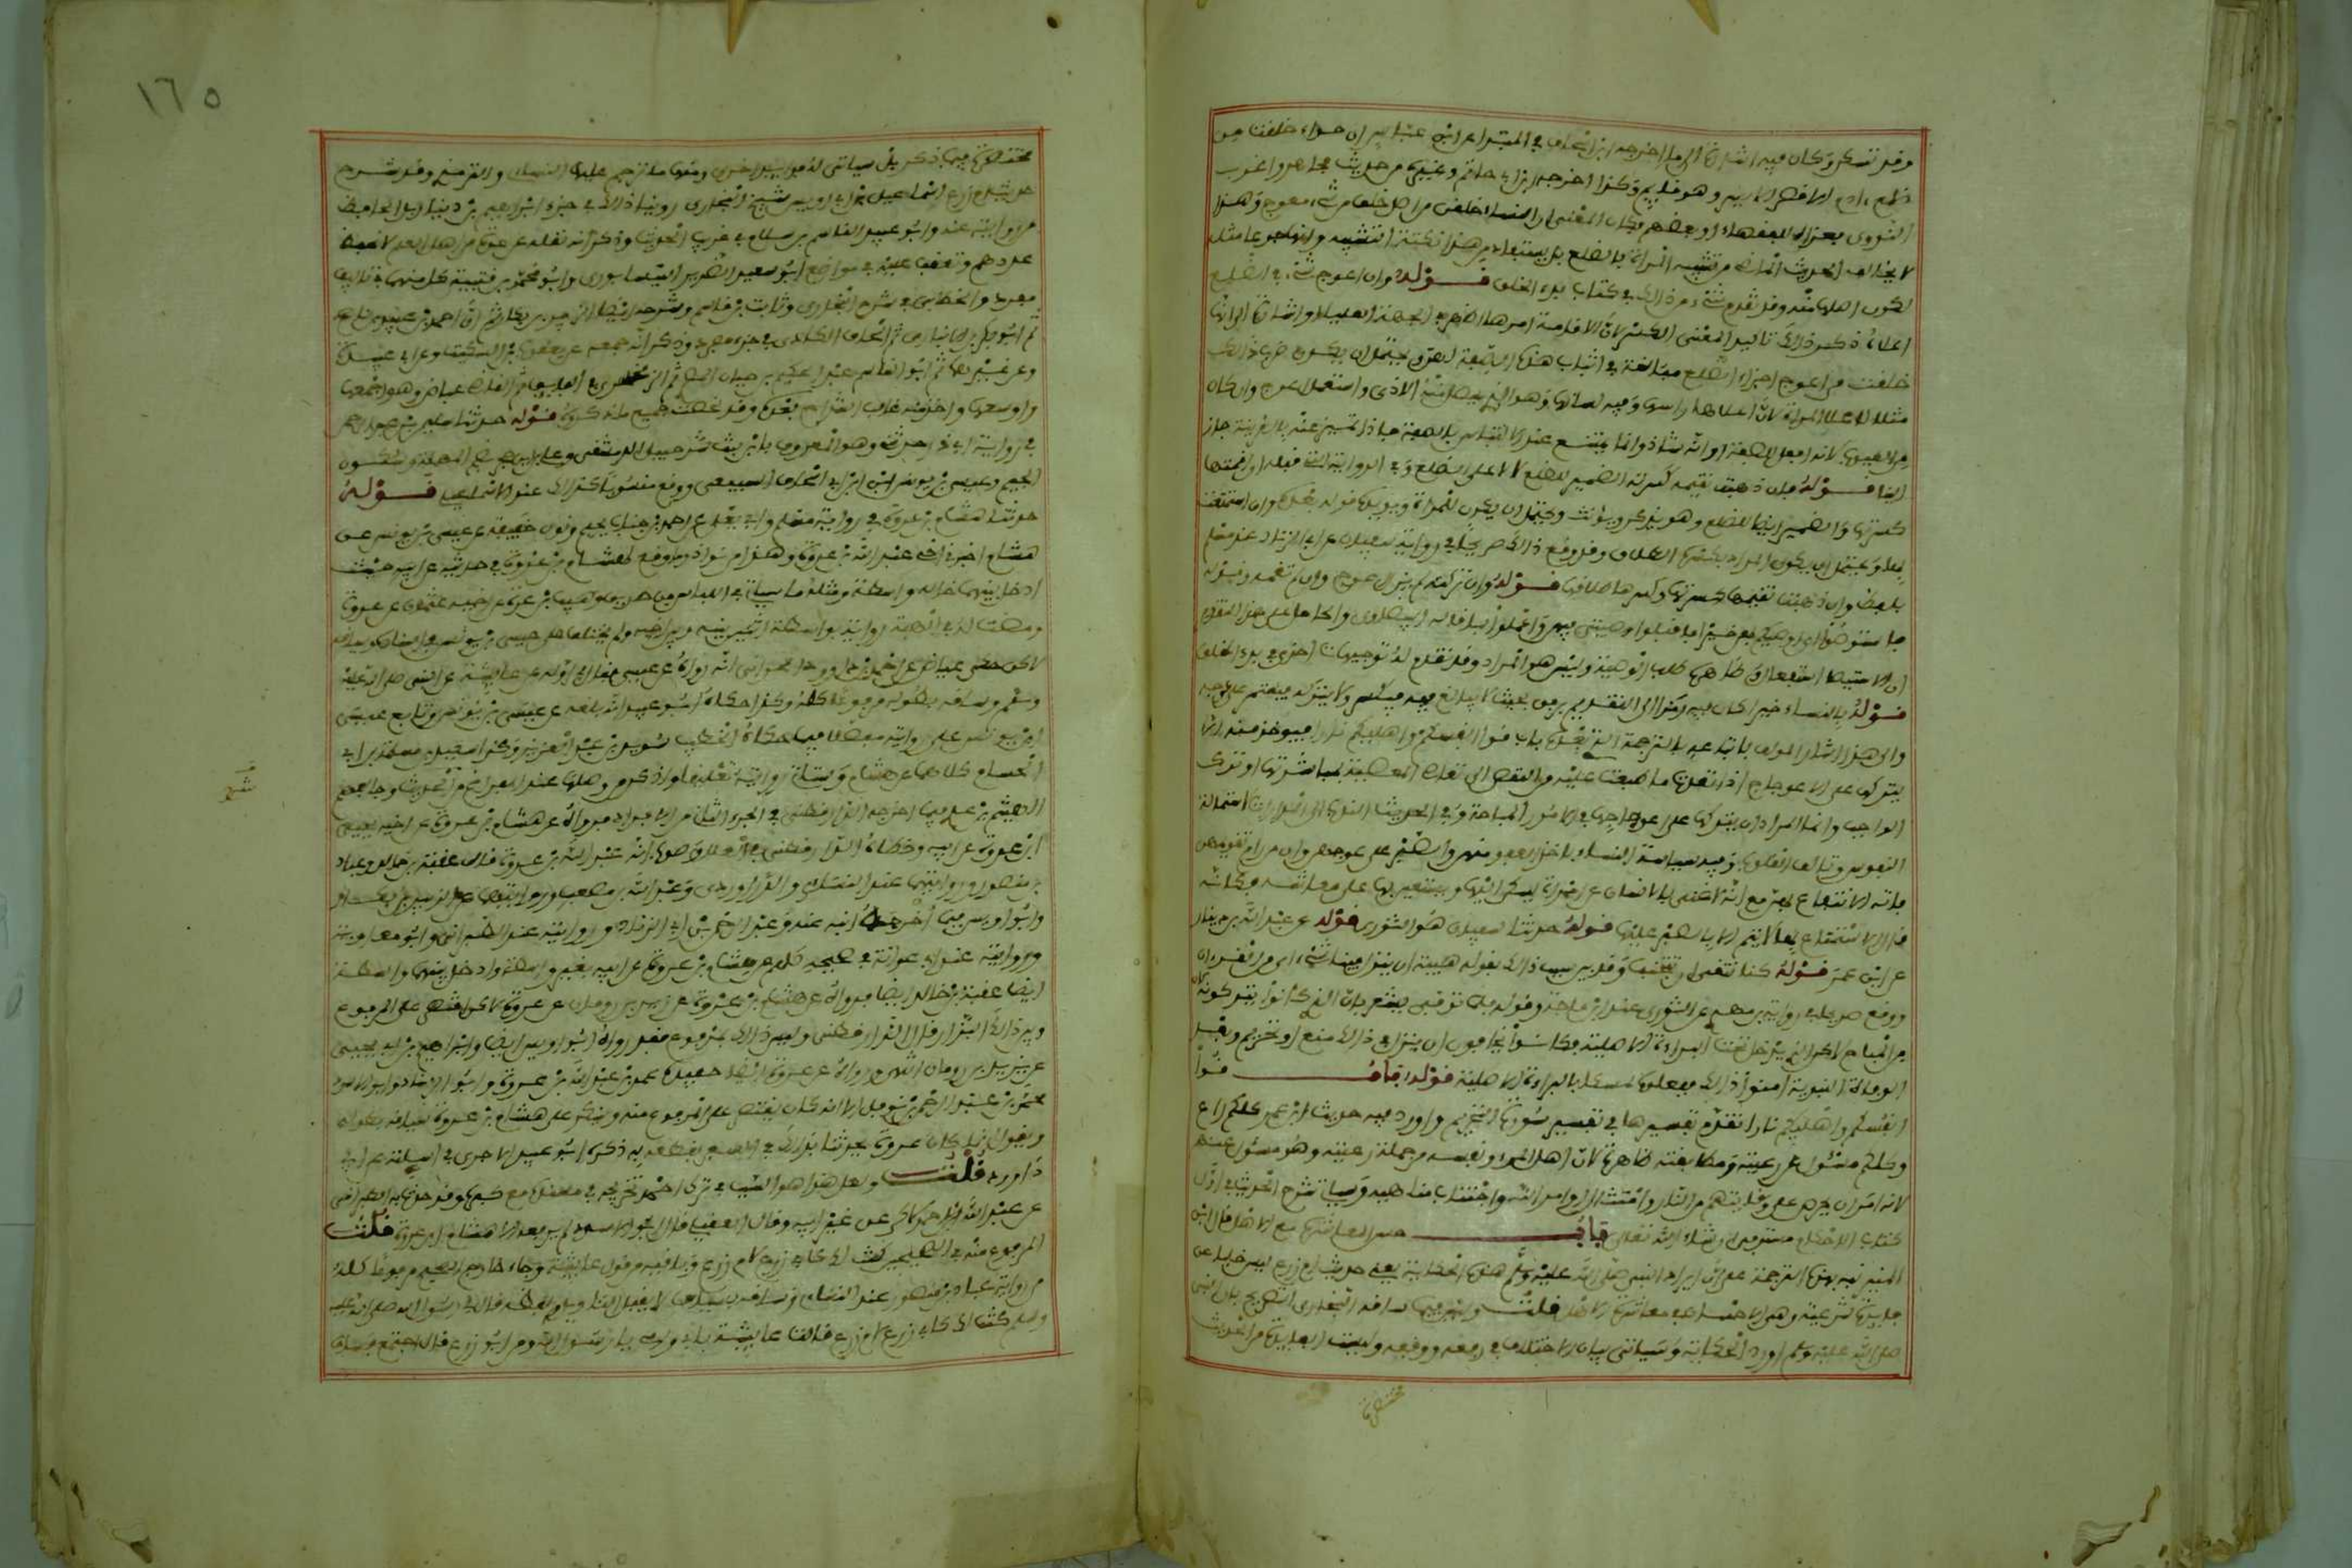 وقد تسكن وكان فيه اشارة الى ما اخرجه ابن اسحاق في المبتدا عن ابن عباس ان حواء خلقت من
ضلع ادم الاقصر الايسر وهو نايم وكذا اخرجه ابن ابي حاتم وغيره من حديث مجاهد واغرب
النووي بعزاه للفقهاء او بعضهم فكان المعنى ان النساء خلقن من اصل خلق من شيء معوج وهذا
لا يخالف الحديث الماضي من تشبيه المراة بالضلع بل يستفاد من هذا نكتة التشبيه وانها عوجا مثله
لكون اصلها منه وقد تقدم شيء من ذلك في كتاب بدء الخلق قوله وان اعوج شيء في الضلع
اعلاه ذكر ذلك تاكيدا لمعنى الكسر لان الاقامة امرها اظهر في الجهة العليا واشارة الى انها
خلقت من اعوج اجزاء الضلع مبالغة في اثبات هذه الصفة لهن ويحتمل ان يكون ضرب ذلك
مثلا لاعلا المراة لان اعلاها راسها وفيه لسانها وهو الذي يحصل منه الاذى واستعمل اعوج وان كان
من العيوب لانه افعل للصفة او انه شاذ وانما يمتنع عند الالتباس بالصفة فاذا تميز عنه بالقرينة جاز
البنا قوله فان ذهبت تقيمه كسرته الضمير للضلع لا لاعلى الضلع وفي الرواية التي قبله ان اقمتها
كسرتها والضمير ايضا للضلع وهو يذكر ويؤنث ويحتمل ان يكون للمراة ويؤيده قوله بعده وان استمتعت
بها ويحتمل ان يكون المراد بكسرها الطلاق وقد وقع ذلك صريحا في رواية سفيان عن ابي الزناد عند مسلم
بلفظ وان ذهبت تقيمها كسرتها وكسرها طلاقها قوله وان تركته لم يزل اعوج وان لم تقمه وقوله
فاستوصوا اي اوصيكم بهن خيرا فاقبلوا وصيتي فيهن واعملوا بها قاله البيضاوي والحامل على هذا التقدير
ان الاستيصا استفعال وظاهره طلب الوصية وليس هو المراد وقد تقدم له توجيهات اخرى في بدء الخلق
قوله بالنساء خيرا كان فيه رمزا الى التقديم برفق بحيث لا يبالغ فيه فيكسر ولا يتركه فيستمر على عوجه
والى هذا اشار المولف باتباعه بالترجمة التي بعده باب قوا انفسكم واهليكم نارا فيوخذ منه الا
يتركها على الاعوجاج اذا تعدت ما طبعت عليه من النقص الى تعاطي المعصية بمباشرتها او ترك
الواجب وانما المراد ان يتركها على اعوجاجها في الامور المباحة وفي الحديث الندب الى المداراة استمالة
النفوس وتالف القلوب وفيه سياسة النساء باخذ العفو منهن والصبر على عوجهن وان من رام تقويمهن
فاته الانتفاع بهن مع انه لا غنى بالانسان عن امراة يسكن اليها ويستعين بها على معاشه فكانه
قال الاستمتاع بها لا يتم الا بالصبر عليها قوله حدثنا سفيان هو الثوري قوله عن عبد الله بن دينار
عن ابن عمر قوله كنا نتقي اي نتجنب وقد بين سبب ذلك بقوله هيبة ان ينزل فينا شيء اي من القران
ووقع صريحا في رواية بن مهدي عن الثوري عند ابن ماجه وقوله فلما توفي يشعر بان الذي كانوا يتركونه كان
من المباح لكن الذي يدخل تحت البراءة الاصلية فكانوا يخافون ان ينزل في ذلك منع او تحريم وبعد
الوفاة النبوية امنوا ذلك ففعلوه تمسكا بالبراءة الاصلية قوله باب قوا
انفسكم واهليكم نارا تقدم تفسيرها في تفسير سورة التحريم واورد فيه حديث ابن عمر كلكم راع
وكلكم مسئول عن رعيته ومطابقته ظاهرة لان اهل المرء ونفسه من جملة رعيته وهو مسئول عنهم
لانه امر ان يحرص على وقايتهم من النار وامتثال اوامر الله واجتناب مناهيه وسياتي شرح الحديث في اول
كتاب الاحكام مستوفى ان شاء الله تعالى باب حسن المعاشرة مع الاهل قال ابن
المنير نبه بهذه الترجمة على ان ايراد النبي صلى الله عليه وسلم هذه الحكاية يعني حديث ام زرع ليس خليا عن
فايدة شرعية وهي الاحسان في معاشرة الاهل قلت وليس فيما ساقه البخاري التصريح بان النبي
صلى الله عليه وسلم اورد الحكاية وسياتي بيان الاختلاف في رفعه ووقفه وليست الفايدة من الحديث
محصورة
١٦٥
محصورة فيما ذكر بل سياتي له فوايد اخرى ومنها ما ترجم عليه النساي والترمذي وقد شرح
حديث ام زرع اسماعيل بن ابي اويس شيخ البخاري روينا ذلك في جزء ابراهيم بن ديزيل الحافظ
من روايته عنه وابو عبيد القاسم بن سلام في غريب الحديث وذكر انه نقله عن عدة من اهل العلم لا يحفظ
عددهم وتعقب عليه في مواضع ابو سعيد الضرير النيسابوري وابو محمد بن قتيبة كل منهما في تاليف
مفرد والخطابي في شرح البخاري وثابت بن قاسم وشرحه ايضا الزبير بن بكار ثم احمد بن عبيد بن ناصح
ثم ابو بكر بن الانباري ثم اسحاق الكاذي في جزء مفرد وذكر انه جمعه عن يعقوب بن السكيت وعن ابي عبيدة
وعن غيرهما ثم ابو القاسم عبد الحكيم بن حيان المصري ثم الزمخشري في الفايق ثم القاضي عياض وهو اجمعها
واوسعها واخذ منه غالب الشراح بعده وقد لخصت جميع ما ذكروه قوله حدثنا سليمن بن عبد الرحمن
في رواية ابي ذر حدثني وهو المعروف بابن بنت شرحبيل الدمشقي وعلي بن حجر بضم المهملة وسكون
الجيم وعيسى بن يونس اي ابن ابي اسحاق السبيعي ووقع منسوبا كذلك عند الاسماعيلي قوله
حدثنا هشام بن عروة في رواية مسلم وابي يعلى عن احمد بن جناب بجيم ونون خفيفة عن عيسى بن يونس عن
هشام اخبرني اخي عبد الله بن عروة وهذا من نوادر ما وقع لهشام بن عروة في حديثه عن ابيه حيث
ادخل بينهما اخا له واسطة ومثله ما سياتي في اللباس من طريق وهيب بن عروة عن اخيه عثمان عن عروة
ومضت له في الهبة رواية بواسطة اثنين بينه وبين ابيه ولم يختلف على عيسى بن يونس في اسناده وسياقه
لكن حكى عياض عن احمد بن داوود الحراني انه رواه عن عيسى فقال في اوله عن عايشة عن النبي صلى الله عليه
وسلم وساقه بطوله مرفوعا كله وكذا حكاه ابو عبيد انه بلغه عن عيسى بن يونس وتابع عيسى
ابن يونس على روايته مفصلا فيما حكاه الخطيب سويد بن عبد العزيز وكذا سعيد بن سلمة بن ابي
الحسام كلاهما عن هشام وستاتي رواية تعليقا واذكر من وصلها عند الفراغ من الحديث وخالفهم
الهيثم بن عدي فيما اخرجه الدارقطني في الجزء الثاني من الافراد فرواه عن هشام بن عروة عن اخيه يحيى
ابن عروة عن ابيه وخطاه الدارقطني في العلل وصوب انه عبد الله بن عروة وقال عقبة بن خالد وعباد
بن منصور وروايتهما عند النساي والدراوردي وعبد الله بن مصعب وروايتهما عن الزبير بن بكار
وابو اويس فيما اخرجه ابنه عنه وعبد الرحمن بن ابي الزناد وروايته عند الطبراني وابو معاوية
وروايته عند ابي عوانة في صحيحه كلهم عن هشام بن عروة عن ابيه بغير واسطة وادخل بينهما واسطة
ايضا عقبة بن خالد ايضا فرواه عن هشام بن عروة عن يزيد بن رومان عن عروة لكن اقتصر على المرفوع
وبين ذلك البزار قال الدارقطني وليس ذلك بمدفوع فقد رواه ابو اويس ايضا وابراهيم بن ابي يحيى
عن يزيد بن رومان انتهى ورواه عن عروة ايضا حفيده عمر بن عبد الله بن عروة وابو الزناد وابو الاسود
محمد بن عبد الرحمن بن نوفل الا انه كان يقتصر على المرفوع منه وينكر على هشام بن عروة سياقه بطوله
ويقول انما كان عروة يحدثنا بذلك في السفر بقطعة منه ذكره ابو عبيد الاجري في اسيلته عن ابي
داود قلت ولعل هذا هو السبب في ترك احمد تخريجه في مسنده مع كبره وقد حدث به الطبراني
عن عبد الله بن احمد لكن عن غير ابيه وقال العقيلي قال ابو الاسود لم يرفعه الا هشام ابن عروة قلت
المرفوع منه في الصحيحين كنت لك كابي زرع لام زرع وباقيه من قول عايشة وجاء خارج الصحيح مرفوعا كله
من رواية عباد بن منصور عند النساي وساقه بسياق لا يقبل التاويل ولفظه قال لي رسول الله صلى الله عليه
وسلم كنت لك كابي زرع لام زرع قالت عايشة بابي وامي يا رسول الله ومن كان ابو زرع قال اجتمع نساء